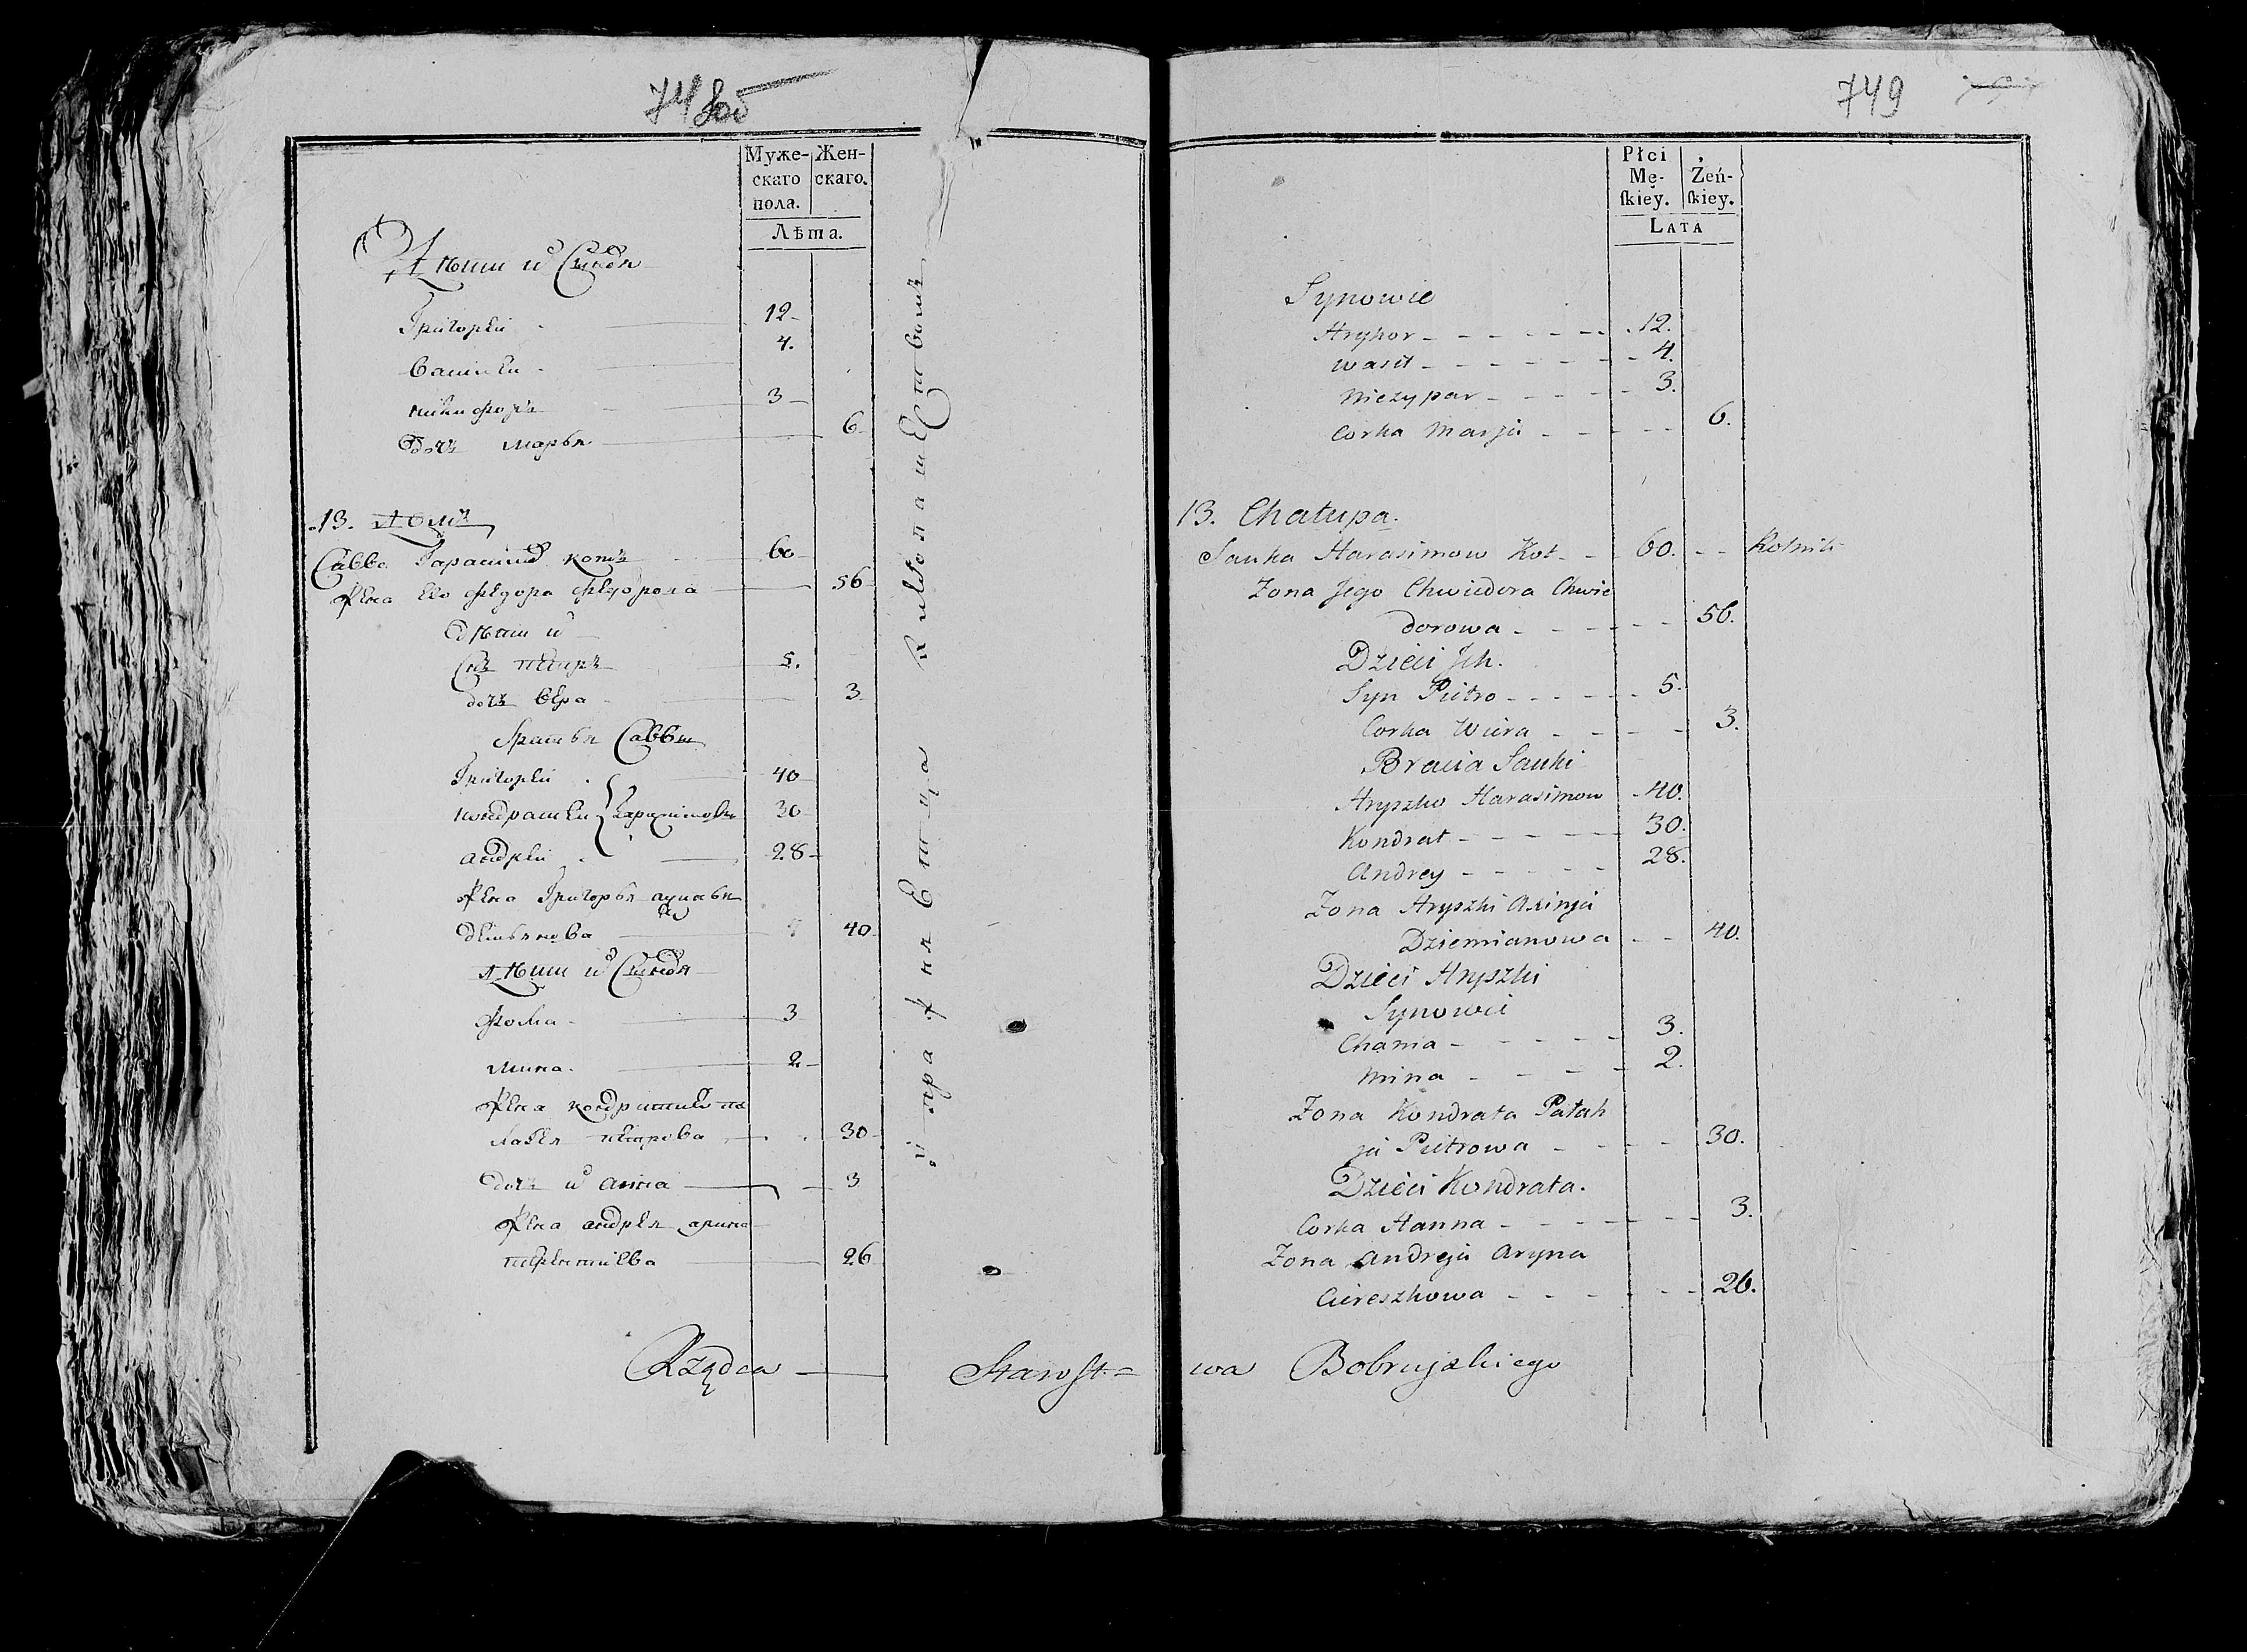 748 об
Муже- Жен-
скаго скаго.
пола.
Лѣта.
Дѣти и Сынов.
Григорей 12
Василей 4.
Никифоръ 3
дочь Марья 6
13. Домъ
Савва Гарасимов Котъ 60
Жена Ево Федора Федорова 56
дѣти и
Снъ Петръ 5.
дочь Вера 3
Братья Саввы
Григорей 40
Кондратей 30
Андрей 28
Жена Григорья
Демьянова 40
Дѣти и Сынов.
Фома 3
Мина 2
Жена Кондратия Па
лагея Петрова 30
дочь и Анна 3
Жена Андрея Арина
26
Rządca Starost=
749
Płci
Mę- Żeń-
ſkiey. ſkiey.
LATA
Synowie
Hryhor 12.
Wasil 4.
Niczypar 3.
Corka Marja 6.
13. Chałupa.
Sauka Harasimow Kot 60. Rolnik
Zona Jego Chwiedora Chwie
dorowa 56.
Dzieci Jch.
Syn Pietro 5.
Corka Wiera 3.
Bracia Sauki
Hryszko Harasimow 40.
Kondrat 30.
Andrey 28.
Zona Hryszki
Dziemianowa 40.
Dzieci Hryszki
Synowie
Chama 3.
Mina 2.
Zona Kondrata Pałah
ja Pietrowa 30.
Dzieci Kondrata.
Corka Hanna 3.
Zona Andreja Aryna
Ciereszkowa 26.
wa Bobrujskiego